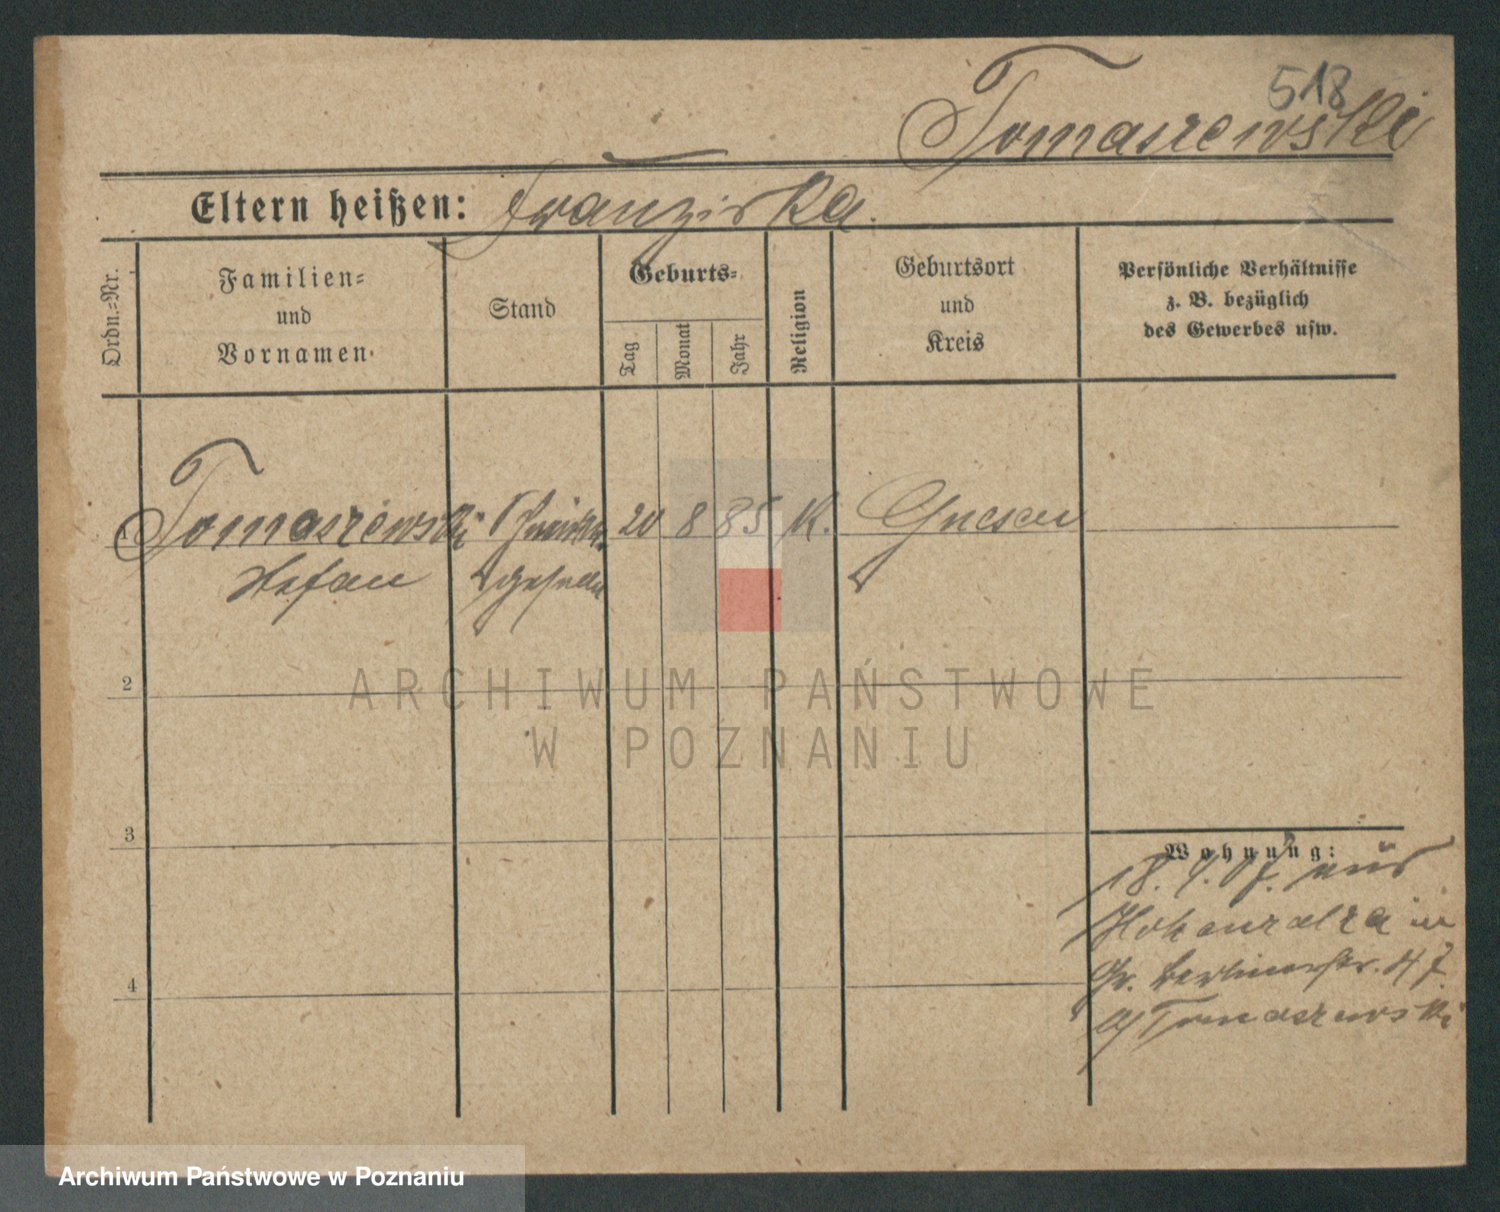 518
Tomaszewski
Eltern heißen: Franziska.
Ordn.=Nr.
Familien=
und
Vornamen.
Stand
Geburts=
Tag.
Monat
Jahr
Religion
Geburtsort
und
Kreis
Persönliche Verhältnisse
z. B. bezüglich
des Gewerbes usw.
1 Tomaszewski 20 8 85 K. Gnesen
Stefan
2
3
4
Wohnung:
18. 9. 07. aus
Hohensalza in
Gr. Berlinerstr. 47
b/ Tomaszewski
ARCHIWUM PAŃSTWOWE
W POZNANIU
Archiwum Państwowe w Poznaniu